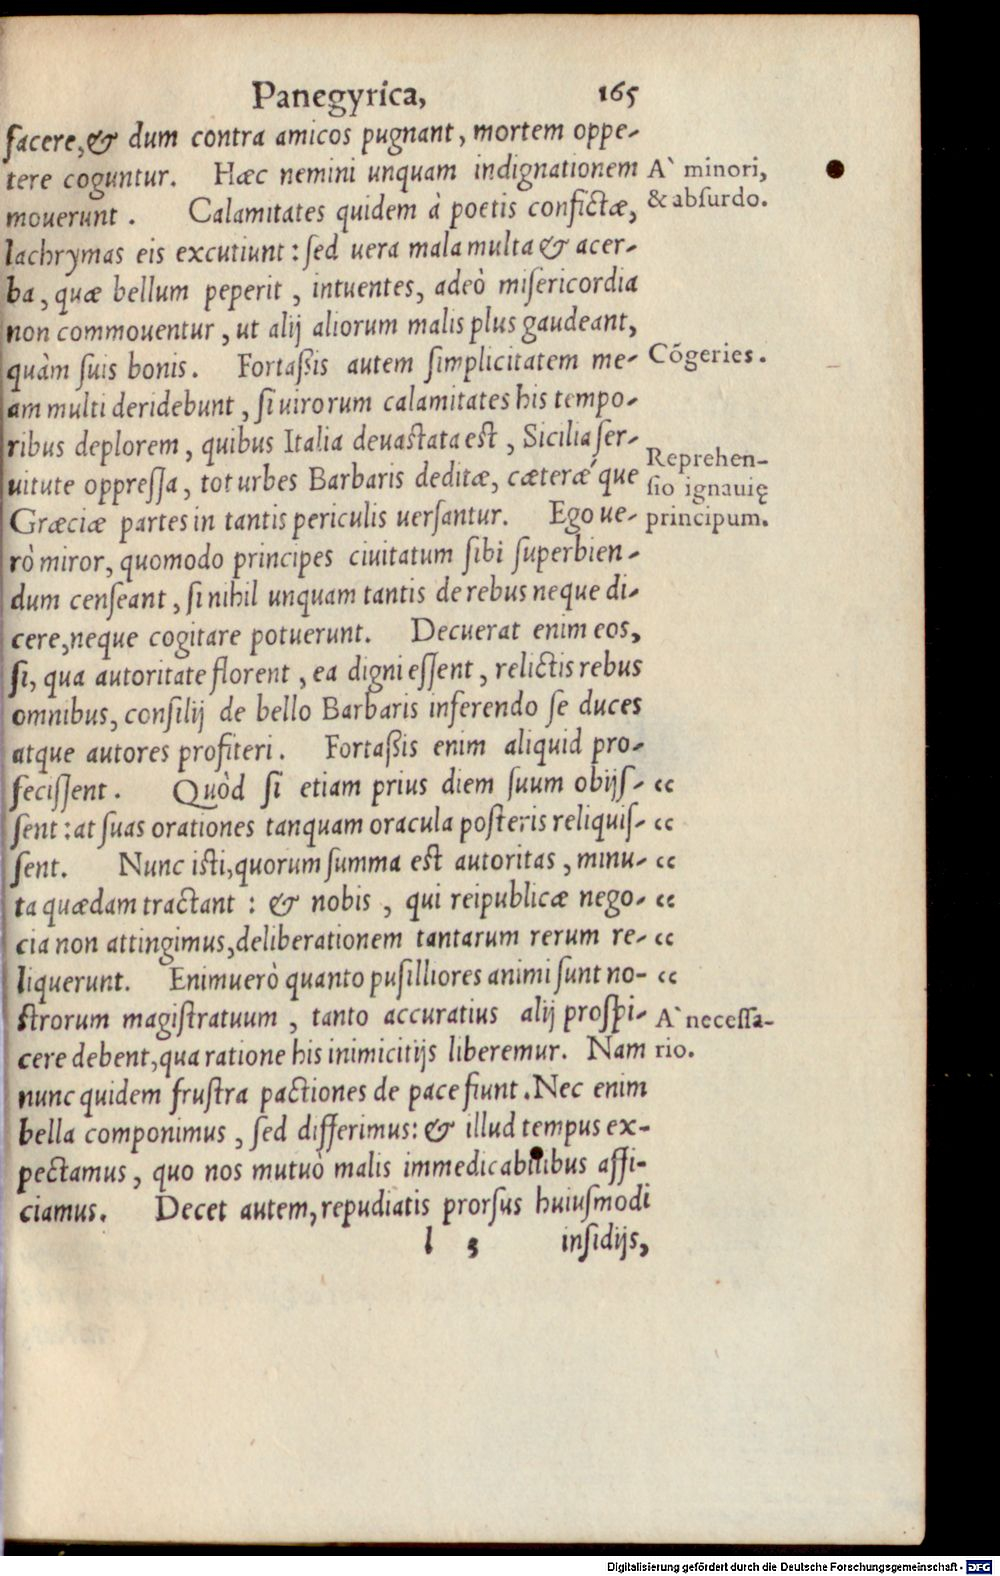 Panegyrica, 165
facere, & dum contra amicos pugnant, mortem oppe-
tere coguntur. Hæc nemini unquam indignationem
A` minori,
mouerunt. Calamitates quidem à poetis confictæ,
& absurdo.
lachrymas eis excutiunt: sed uera mala multa & acer-
ba, quæ bellum peperit, intuentes, adeò misericordia
non commouentur, ut alij aliorum malis plus gaudeant,
quàm suis bonis. Fortaßis autem simplicitatem me-
Cõgeries.
am multi deridebunt, si uirorum calamitates his tempo-
ribus deplorem, quibus Italia deuastata est, Sicilia ser-
Reprehen-
uitute oppressa, tot urbes Barbaris deditæ, cæteræ´que
sio ignauię
Græciæ partes in tantis periculis uersantur. Ego ue-
principum.
rò miror, quomodo principes ciuitatum sibi superbien-
dum censeant, si nihil unquam tantis de rebus neque di-
cere, neque cogitare potuerunt. Decuerat enim eos,
si, qua autoritate florent, ea digni essent, relictis rebus
omnibus, consilij de bello Barbaris inferendo se duces
atque autores profiteri. Fortaßis enim aliquid pro-
fecissent. Quòd si etiam prius diem suum obijs- “
sent: at suas orationes tanquam oracula posteris reliquis- “
sent. Nunc isti, quorum summa est autoritas, minu- “
ta quædam tractant: & nobis, qui reipublicæ nego- “
cia non attingimus, deliberationem tantarum rerum re- “
liquerunt. Enimuerò quanto pusilliores animi sunt no- “
strorum magistratuum, tanto accuratius alij prospi-
A` necessa-
cere debent, qua ratione his inimicitijs liberemur. Nam
rio.
nunc quidem frustra pactiones de pace fiunt. Nec enim
bella componimus, sed differimus: & illud tempus ex-
pectamus, quo nos mutuò malis immedicabilibus affi-
ciamus. Decet autem, repudiatis prorsus huiusmodi
l 3 insidijs,
Digitalisierung gefördert durch die Deutsche Forschungsgemeinschaft - DFG